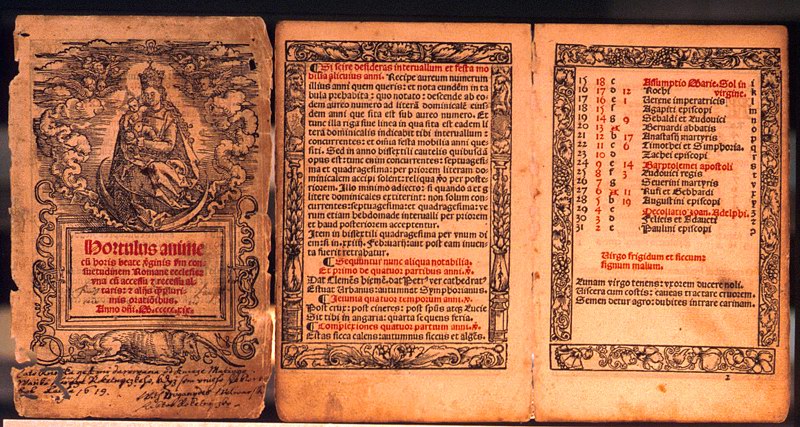 Hortulus anime
cū horis beate v̓ginis s̓m con
suetudinem Romane ecclesie:
vna cū accessu ⁊ recessu al
taris: ⁊ alijs q̄ppluri
mis orationibus.
Anno dñi. M.ccccc.xix.
1619.
Si scire desideras interuallum et festa mo
bilia alicuius anni. Recipe aureum numerum
illius anni quem queris: et nota eundē in ta
bula prehabita: quo notato: descende ab eo
dem aureo numero ad literā dominicalē eius
dem anni que sita est sub aureo numero. Et
tunc illa riga siue linea in qua sita est eadem li
tera dominicalis indicabit tibi interuallum:
concurrentes: et omīa festa mobilia anni que
siti. Sed in anno bissextili cautelis quibusdā
opus est: tunc enim concurrentes: septuagesi
ma et quadragesima: per priorem literam do
minicalem accipi solent: reliqua v̓o per poste
riorem. Illo minimo adiecto: si quando a et g
litere dominicales extiterint: non solum con
currentes: septuagesima et quadragesima: ve
rum etiam hebdomade interualli per priorem
et haud posteriorem acceptentur.
Item in bissextili quadragesima per vnum di
em si in .xxiiij. Februarij: aut post eam inuen
ta fuerit retrahatur.
Sequuntur nunc aliqua notabilia.
Et primo de quatuor partibus anni.
Dat Clemēs hiemē. dat Petrꝰ ver cathedratꝰ
Estuat Urbanus: autumnat Symphorianus.
Ieiunia quatuor temporum anni.
Post cruc: post cineres: post spūs atq̄ Lucie
Sit tibi in angaria: quarta sequens feria.
Complexiones quatuor partium anni.
Estas sicca calens: autumnus siccus et algēs.
15 18 c Assumptio Marie. Sol in i
16 17 d 12 Rochi virgine. k
17 16 e 1 Serene imperatricis l
18 15 f Agapiti episcopi m
19 14 g 9 Sebaldi et Ludouici n
20 13 Bernardi abbatis o
21 12 b 17 Anastasij martyris p
22 11 c 6 Timothei et Simphoria. q
23 10 d Zachei episcopi r
24 9 e 14 Bartolomei apostoli s
25 8 f 3 Ludouici regis
26 7 g Seuerini martyris
27 11 Rufi et Gebhardi
28 5 b 19 Augustini episcopi
29 4 c Decollatio Joan. Adelphi.
30 3 d Felicis et Adaucti
31 2 e Paulini episcopi
Virgo frigidum et siccum:
signum malum.
Lunam virgo tenens: vxorem ducere noli.
Viscera cum costis: caueas tractare cruorem.
Semen detur agro: dubites intrare carinam.
2